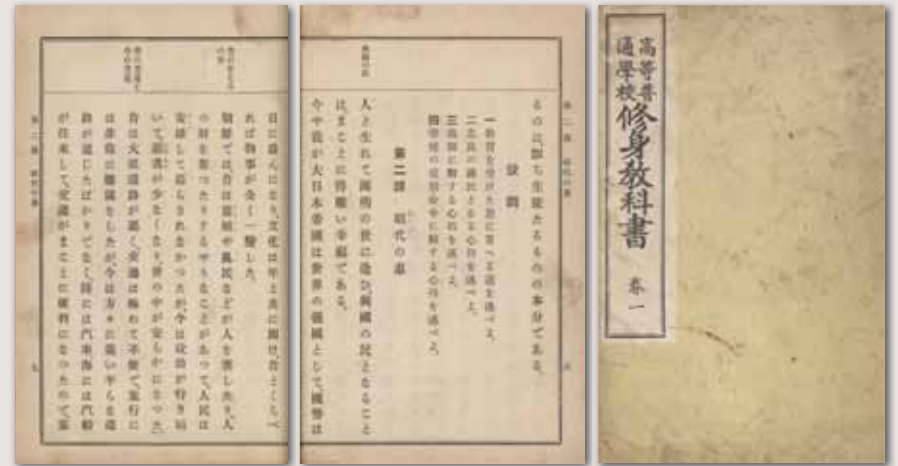 高等普
通學校
修身教科書
卷一
るのは、卽ち生徒たるものの本分である。
設問
一 教育を受けた恩に答へる道を述べよ。
二 忠良の國民となる心得を述べよ。
三 教師に對する心得を述べよ。
四 學校の規則命令に對する心得を述べよ。
第二課 昭代の惠
人と生れて開明の世に逢ひ、興國の民となること
はまことに得難い幸福である。
今や我が大日本帝國は世界の强國として、國勢は
日に盛んになり、文化は年と共に開け、昔とくらべ
れば物事が全く一變した。
朝鮮では昔は盜賊や亂民などが人を害したり、人
の財を奪つたりするやうなことがあつて、人民は
安堵して暮らされなかつたが、今は政治が行き屆
いて、惡漢が少なくなり、世の中が安らかになつた。
昔は大抵道路が惡く、交通は極めて不便で、旅行に
は非常に難儀をしたが、今は方々に廣い平らな道
路が通じたばかりでなく、陸には汽車、海には汽船
が往來して、交通がまことに便利になつたので、